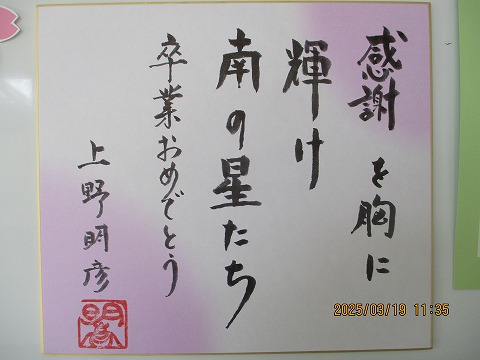 感謝を胸に
輝け
南の星たち
卒業おめでとう
上野明彦
2025/03/19 11:35